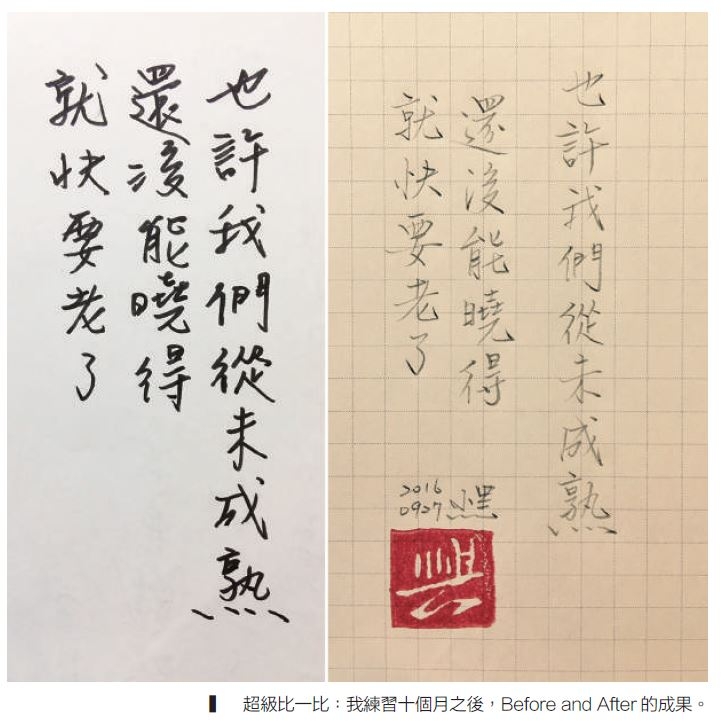 也許我們從未成熟
還沒能曉得
就快要老了
也許我們從未成熟
還沒能曉得
就快要老了
2016
0927
超級比一比：我練習十個月之後，Before and After 的成果。